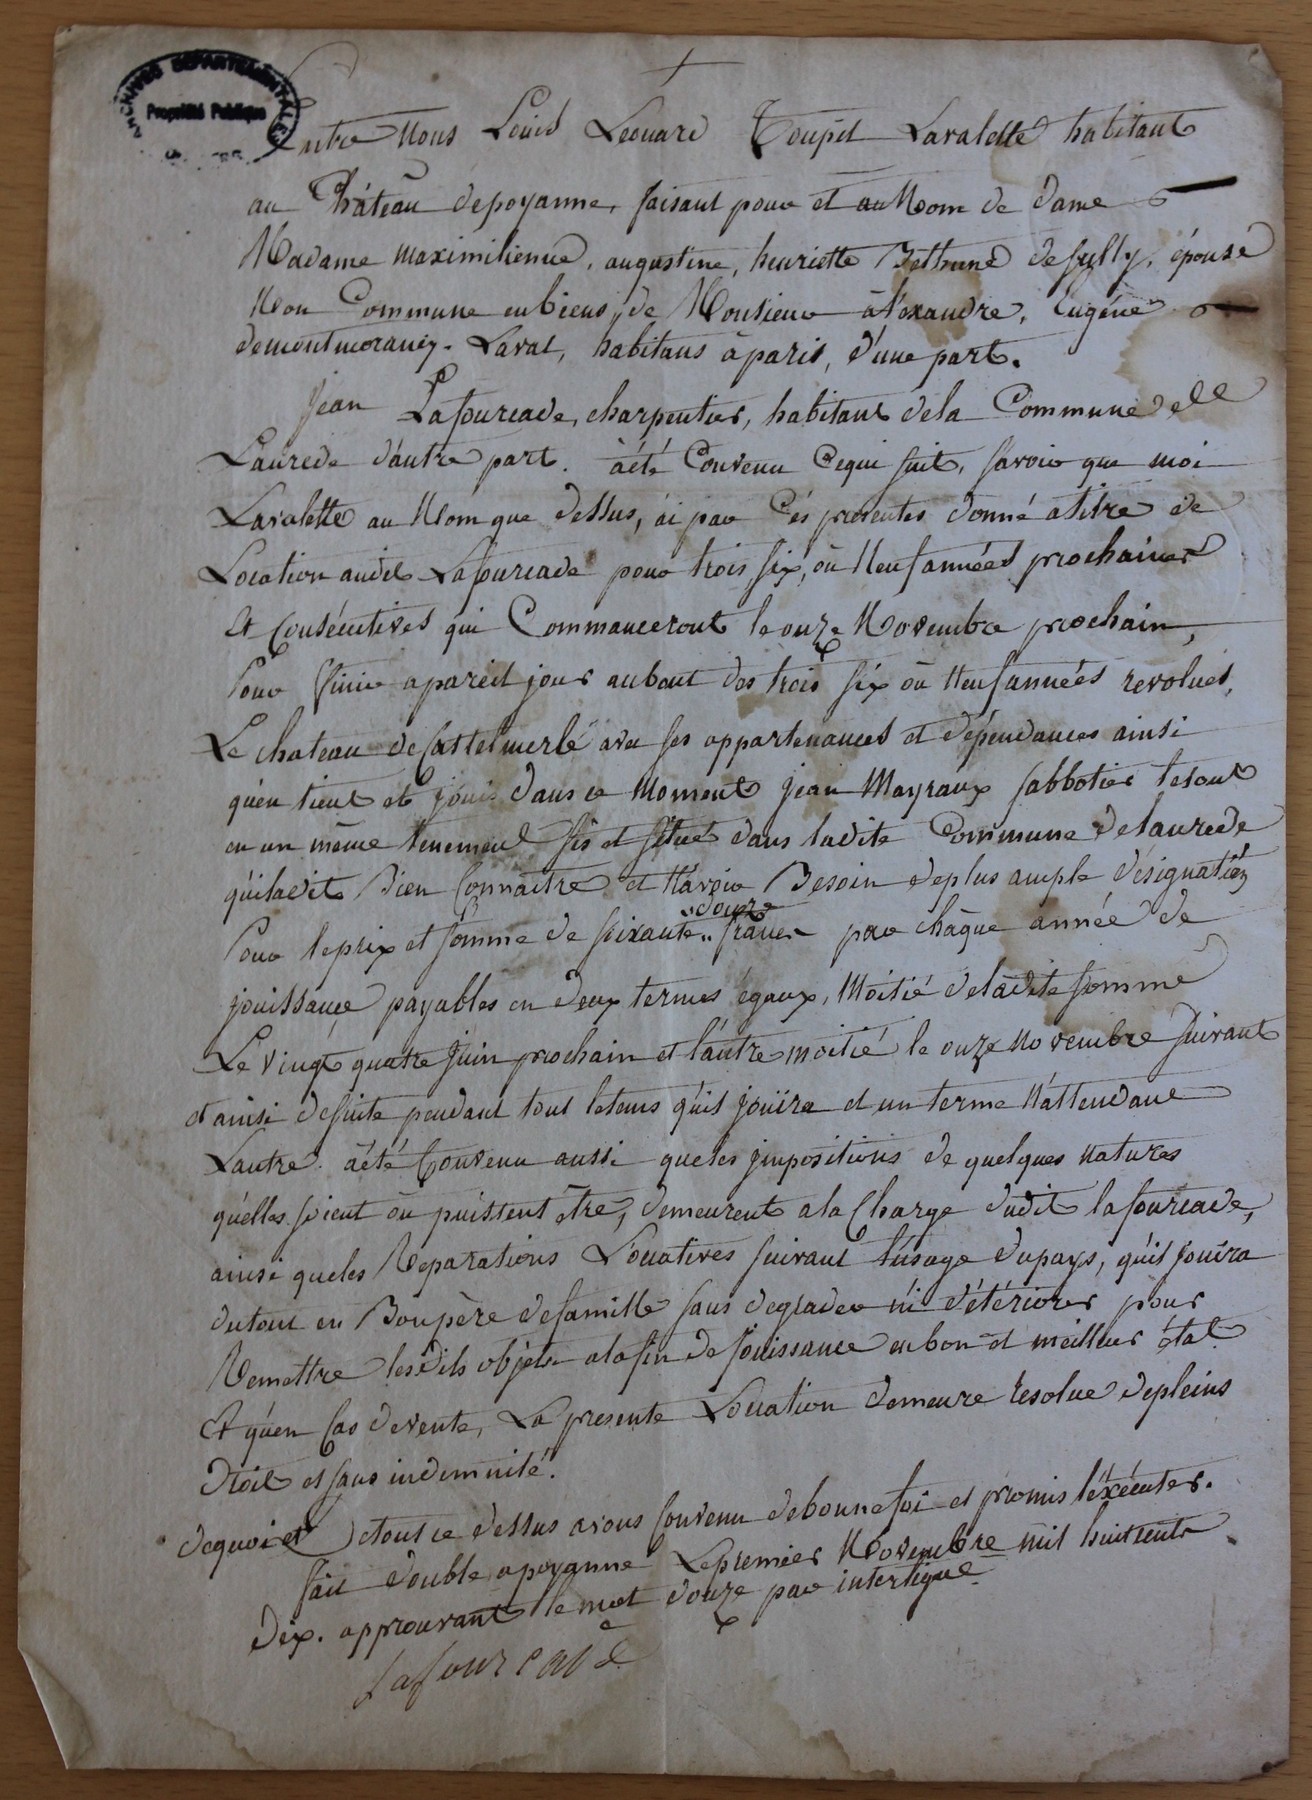 ARCHIVES DEPARTEMENTALES
Propriété Publique
Entre Nous Louis Leonard Toupit Lavalette habitant
au Château depoyanne, faisant pour et au Nom de dame
Madame maximilienne, augustine, henriette Bethune de sully, épouse
Non Commune enbiens, de Monsieur àlexandre, Eugéne
demontmorancy-Laval, habitans àparis, d'une part.
Jean Lafourcade, charpentier, habitant dela Commune de
Laurede d'autre part. àété Convenu Cequi suit, savoir que moi
Lavalette au Nom que dessus, ai par Cés presentes donné atitre de
Location audit Lafourcade pour trois, six, où Neuf années prochaines
Et Consécutives qui Commanceront le onze Novembre prochain,
Pour finir apareil jour aubout des trois six où Neuf années revolues,
Le chateau de Castelmerle avec ses appartenances et dépendances ainsi
qu'en tient et jouis dans ce Moment jean Mayraux sabbotier letout
en un même tenement sis et situé dans ladite Commune delaurede
quiladit Bien Connaitre et N'avoir Besoin deplus ample désignation
Pour leprix et somme de soixante "douze" francs par chàque année de
jouissance payables en deux termes égaux, Moitié deladite somme
Le vingt quatre juin prochain et l'autre moitié le onze Novembre suivant
et ainsi desuite pendant tout letems qu'il jouira et un terme N'attendant
Lautre. àété Convenu aussi queles jmpositions de quelques natures
qu'elles soient où puissent être, demeurent ala Charge dudit lafourcade,
ainsi queles Reparations Locatives suivant l'usage dupays, qu'il jouira
dutout en Bonpère defamille sans degrader ni détériorer pour
Remettre lesdits objets alafin de jouissance enbon et meilleur état.
Et qu'en Cas devente, La presente Location demeure resolue depleins
droit et sans indemnité.
dequoi et tout ce dessus avons Convenu debonnefoi et promis l'éxécuter.
fait double apoyanne Lepremier Novembre mil huit cents
Dix. approuvant le mot douze par interligne
Lafourcade